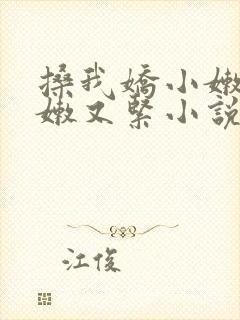 搡我嬌小嫩
嫩又緊小說
江俊